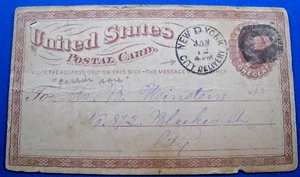 United States
POSTAL CARD.
NEW YORK
JAN
12
4 PM
CITY DELIVERY
WRITE THE ADDRESS ONLY ON THIS SIDE - THE MESSAGE ON THE OTHER
"Carrier Rate"
To Winstein
No. 872. Bleecker St
City